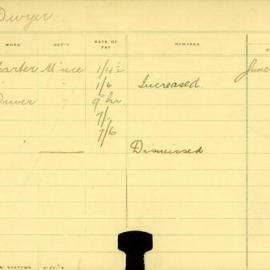 Dwyer
WORK DEP'T RATE OF PAY REMARKS
Carter M'nce 1/4½ June
" " 1/6 Increased
Driver " 9 hr
7/-
7/6
Dismissed